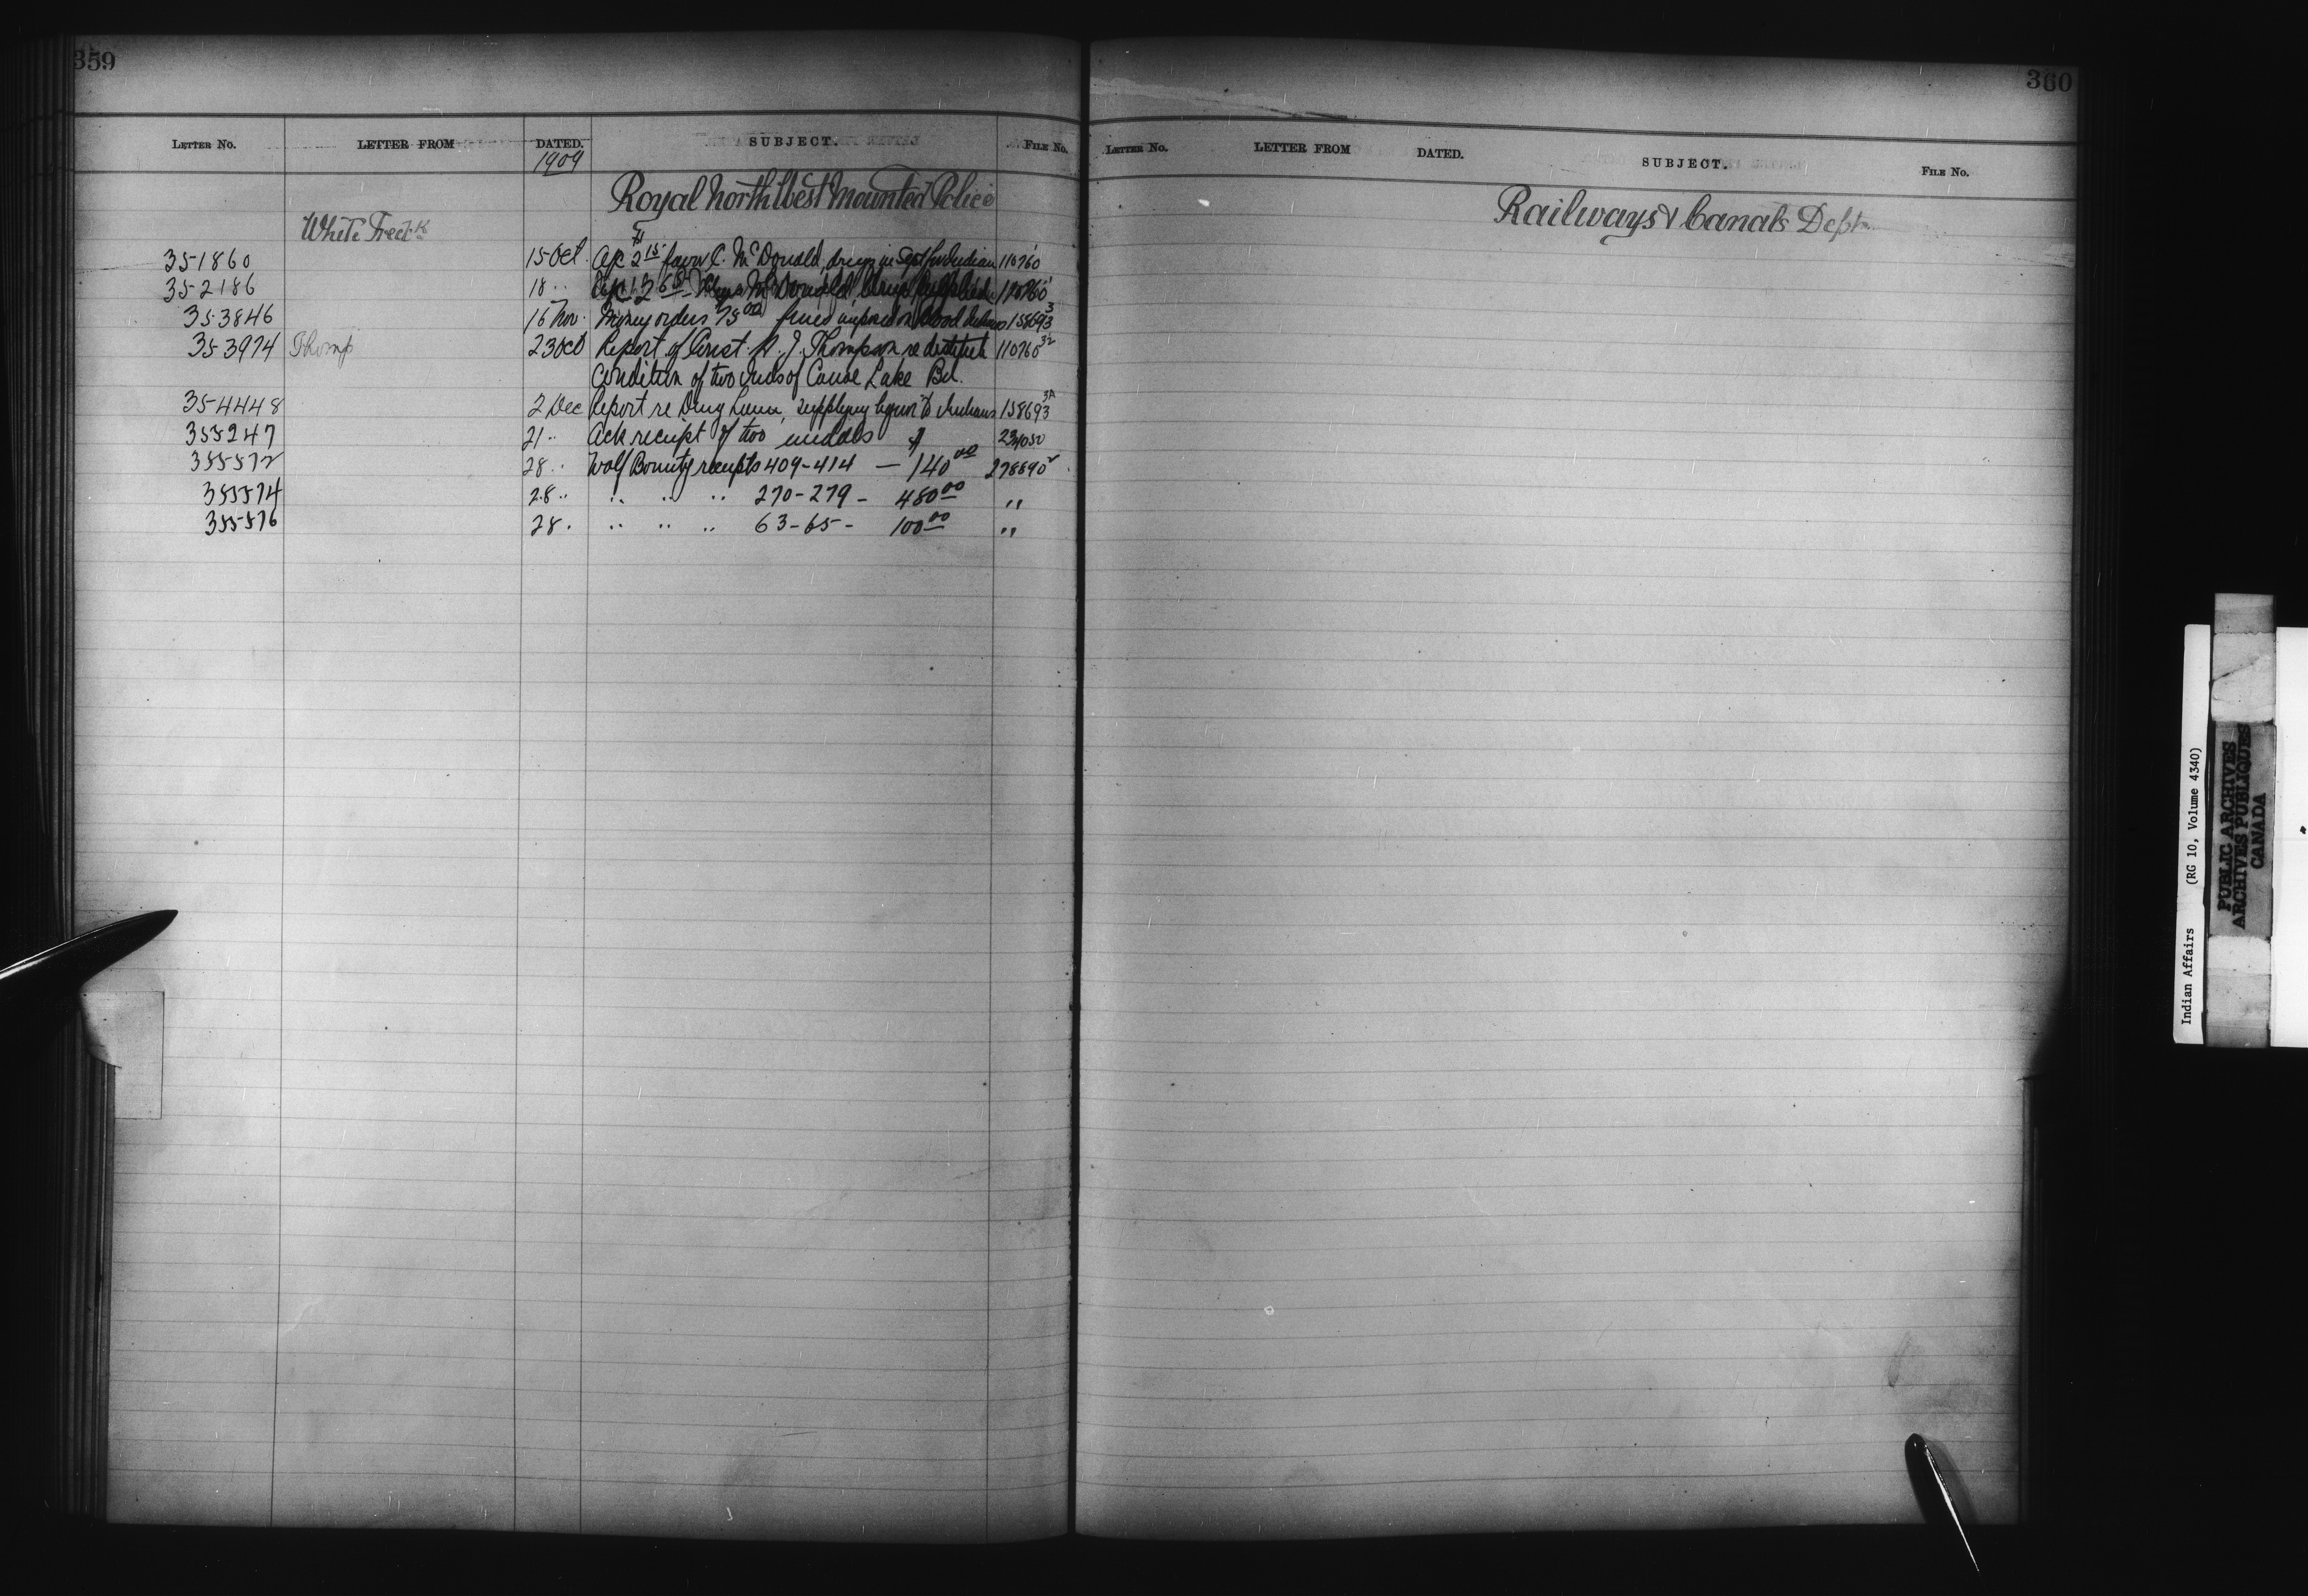 359
LETTER NO. LETTER FROM DATED. SUBJECT. FILE NO.
1909
Royal North West Mounted Police
White Fred k
351860 15 Oct. a/c 2 15 favor C. McDonald, drugs in Sept for Indian 110760
352186 18 " McDonald 110760
353846 16 Nov. Money orders 75 00 fines imposed on Blood Indians 158693 3
353974 Thomp 23 Oct Report of Const. W. J. Thompson re destitute 110760 32
Condition of two Inds of Canoe Lake Bd.
354448 2 Dec Report re Doug Lunn, supplying liquor to Indians 158693 3A
355247 21 " Ack receipt of two medals 234050
355572 28 " Wolf Bounty receipts 409-414 — $140 00 278890 2
355574 28 " " " " 270-279 - 480 00 "
355576 28 " " " " 63-65 - 100 00 "
360
LETTER NO. LETTER FROM DATED. SUBJECT. FILE NO.
Railways & Canals Dept
Indian Affairs (RG 10, Volume 4340)
PUBLIC ARCHIVES
ARCHIVES PUBLIQUES
CANADA